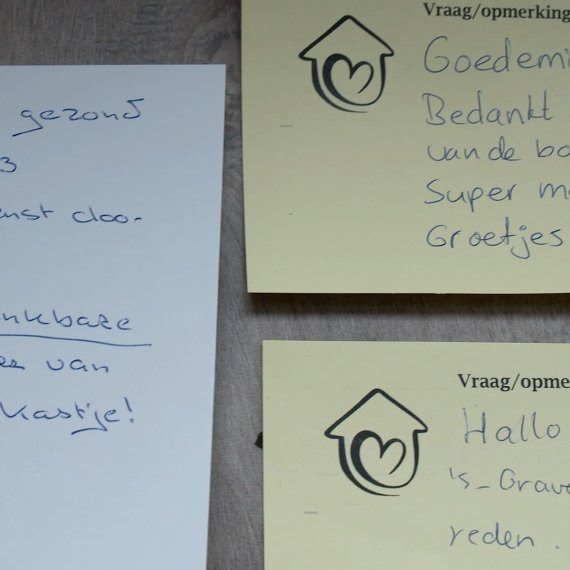 gezond
3
enst doo-
nkbare
van
kastje!
Vraag/opmerking
Goedemi
Bedankt
van de bo
Super m
Groetjes
Vraag/opme
Hallo
's-Grave
reden.